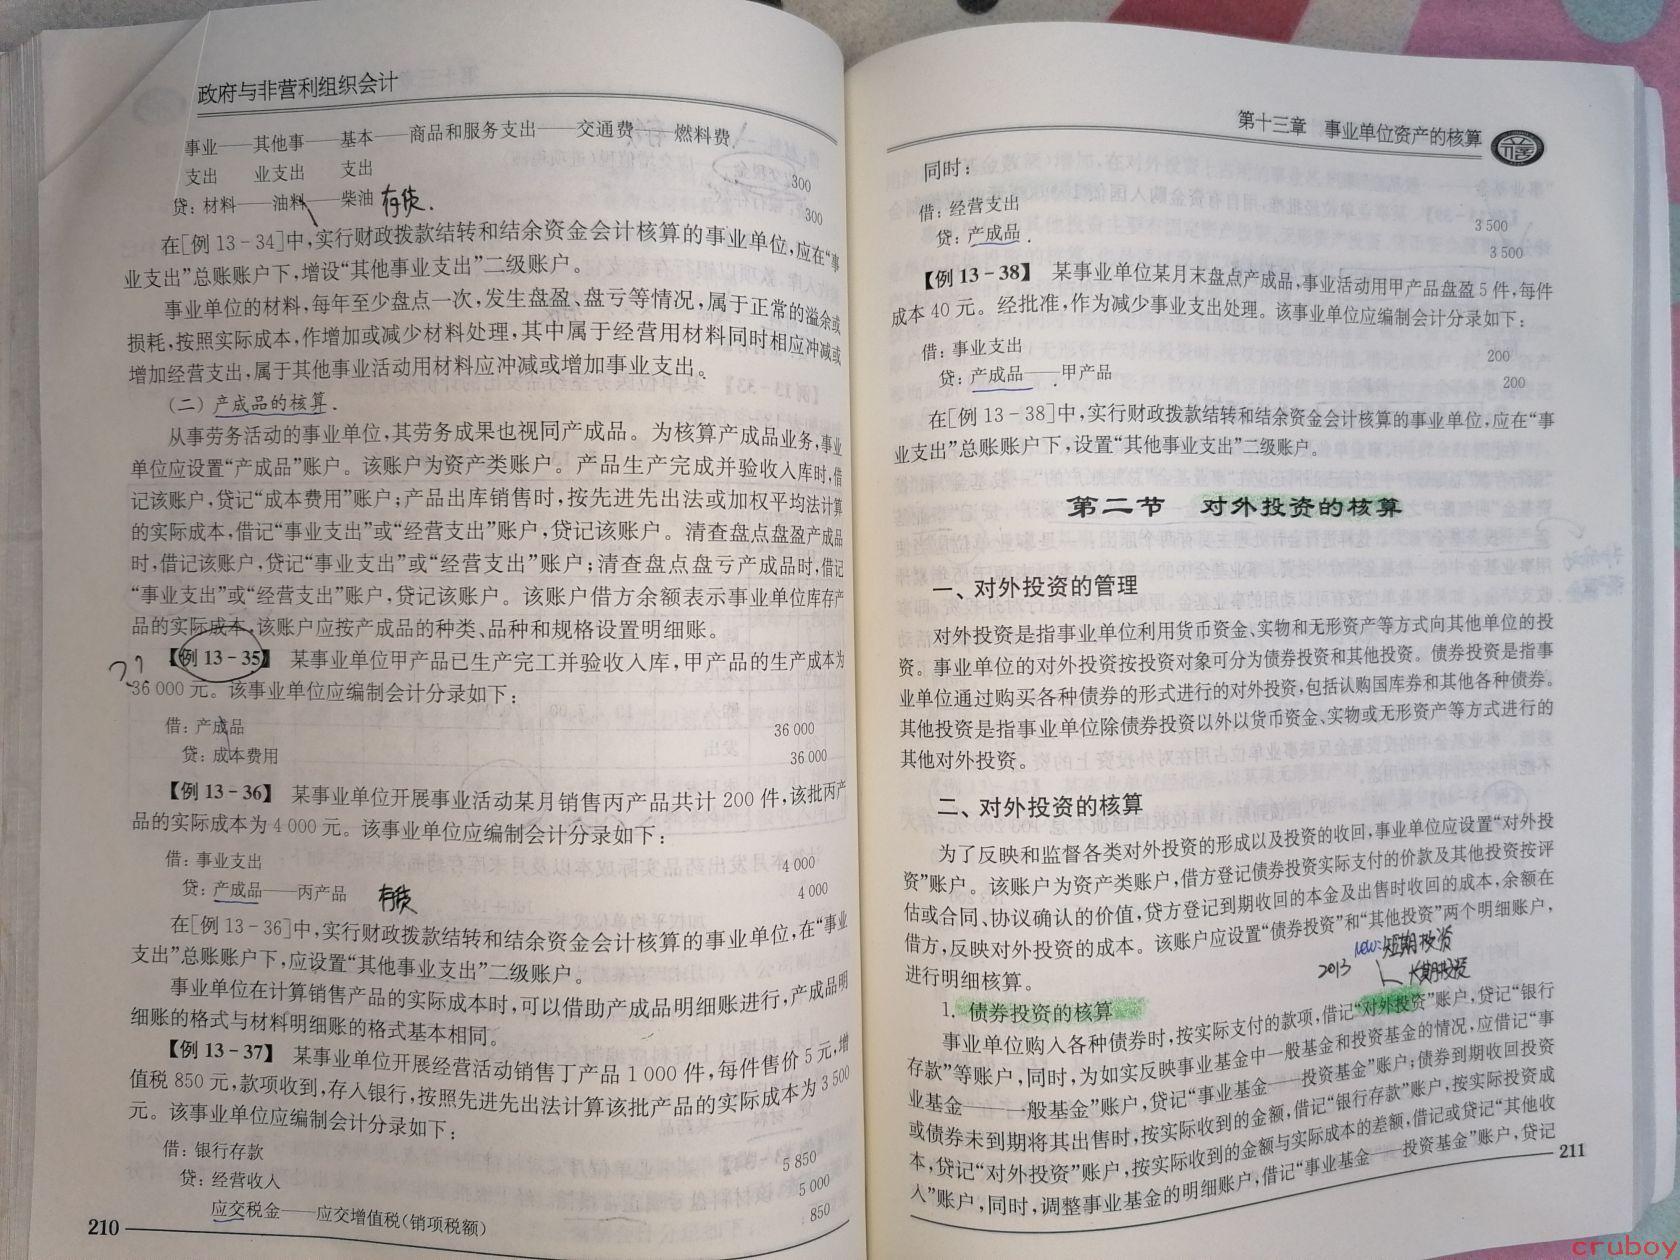 政府与非营利组织会计
事业——其他事——基本——商品和服务支出——交通费——燃料费
支出 业支出 支出 300
贷:材料——油料——柴油 存货. 300
在[例 13-34]中,实行财政拨款结转和结余资金会计核算的事业单位,应在“事
业支出”总账账户下,增设“其他事业支出”二级账户。
事业单位的材料,每年至少盘点一次,发生盘盈、盘亏等情况,属于正常的溢余或
损耗,按照实际成本,作增加或减少材料处理,其中属于经营用材料同时相应冲减或
增加经营支出,属于其他事业活动用材料应冲减或增加事业支出。
(二) 产成品的核算.
从事劳务活动的事业单位,其劳务成果也视同产成品。为核算产成品业务,事业
单位应设置“产成品”账户。该账户为资产类账户。产品生产完成并验收入库时,借
记该账户,贷记“成本费用”账户;产品出库销售时,按先进先出法或加权平均法计算
的实际成本,借记“事业支出”或“经营支出”账户,贷记该账户。清查盘点盘盈产成品
时,借记该账户,贷记“事业支出”或“经营支出”账户;清查盘点盘亏产成品时,借记
“事业支出”或“经营支出”账户,贷记该账户。该账户借方余额表示事业单位库存产
品的实际成本,该账户应按产成品的种类、品种和规格设置明细账。
??【例 13-35】 某事业单位甲产品已生产完工并验收入库,甲产品的生产成本为
36 000 元。该事业单位应编制会计分录如下:
借:产成品 36 000
贷:成本费用 36 000
【例 13-36】 某事业单位开展事业活动某月销售丙产品共计 200 件,该批丙产
品的实际成本为 4 000 元。该事业单位应编制会计分录如下:
借:事业支出 4 000
贷:产成品——丙产品 存货 4 000
在[例 13-36]中,实行财政拨款结转和结余资金会计核算的事业单位,在“事业
支出”总账账户下,应设置“其他事业支出”二级账户。
事业单位在计算销售产品的实际成本时,可以借助产成品明细账进行,产成品明
细账的格式与材料明细账的格式基本相同。
【例 13-37】 某事业单位开展经营活动销售丁产品 1 000 件,每件售价 5 元,增
值税 850 元,款项收到,存入银行,按照先进先出法计算该批产品的实际成本为 3 500
元。该事业单位应编制会计分录如下:
借:银行存款 5 850
贷:经营收入 5 000
应交税金——应交增值税(销项税额) 850
210
第十三章 事业单位资产的核算
同时:
借:经营支出 3 500
贷:产成品. 3 500
【例 13-38】 某事业单位某月末盘点产成品,事业活动用甲产品盘盈 5 件,每件
成本 40 元。经批准,作为减少事业支出处理。该事业单位应编制会计分录如下:
借:事业支出 200
贷:产成品——甲产品 200
在[例 13-38]中,实行财政拨款结转和结余资金会计核算的事业单位,应在“事
业支出”总账账户下,设置“其他事业支出”二级账户。
第二节 对外投资的核算
一、对外投资的管理
对外投资是指事业单位利用货币资金、实物和无形资产等方式向其他单位的投
资。事业单位的对外投资按投资对象可分为债券投资和其他投资。债券投资是指事
业单位通过购买各种债券的形式进行的对外投资,包括认购国库券和其他各种债券。
其他投资是指事业单位除债券投资以外以货币资金、实物或无形资产等方式进行的
其他对外投资。
二、对外投资的核算
为了反映和监督各类对外投资的形成以及投资的收回,事业单位应设置“对外投
资”账户。该账户为资产类账户,借方登记债券投资实际支付的价款及其他投资按评
估或合同、协议确认的价值,贷方登记到期收回的本金及出售时收回的成本,余额在
借方,反映对外投资的成本。该账户应设置“债券投资”和“其他投资”两个明细账户,
进行明细核算。
new:短期投资
2013 长期投资
1. 债券投资的核算
事业单位购入各种债券时,按实际支付的款项,借记“对外投资”账户,贷记“银行
存款”等账户,同时,为如实反映事业基金中一般基金和投资基金的情况,应借记“事
业基金——一般基金”账户,贷记“事业基金——投资基金”账户;债券到期收回投资
或债券未到期将其出售时,按实际收到的金额,借记“银行存款”账户,按实际投资成
本,贷记“对外投资”账户,按实际收到的金额与实际成本的差额,借记或贷记“其他收
入”账户,同时,调整事业基金的明细账户,借记“事业基金——投资基金”账户,贷记
211
cruboy